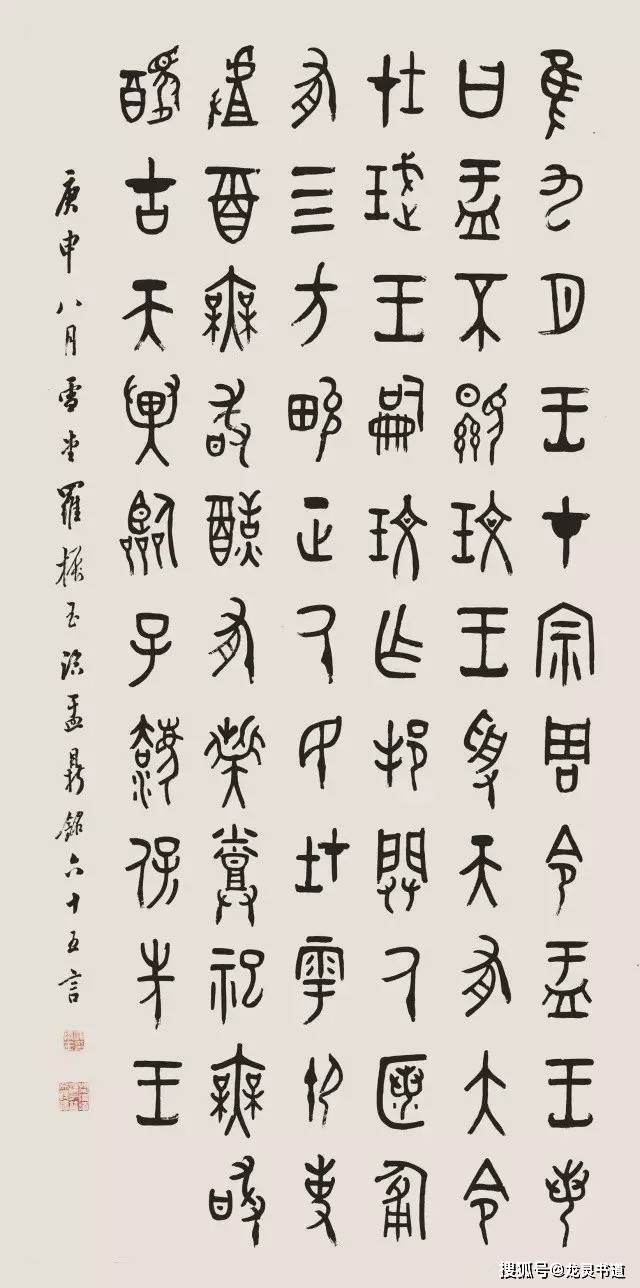 隹九月王才宗周令盂王若
曰盂不顯玟王受天有大令
在珷王嗣玟乍邦闢厥匿匍
有三方畯正厥民在雩御事
𠭯酉無敢酖有祡烝祀無敢
醻古天異臨子灋保先王
庚申八月雪堂羅振玉臨盂鼎銘六十五言
搜狐号@龙灵书道